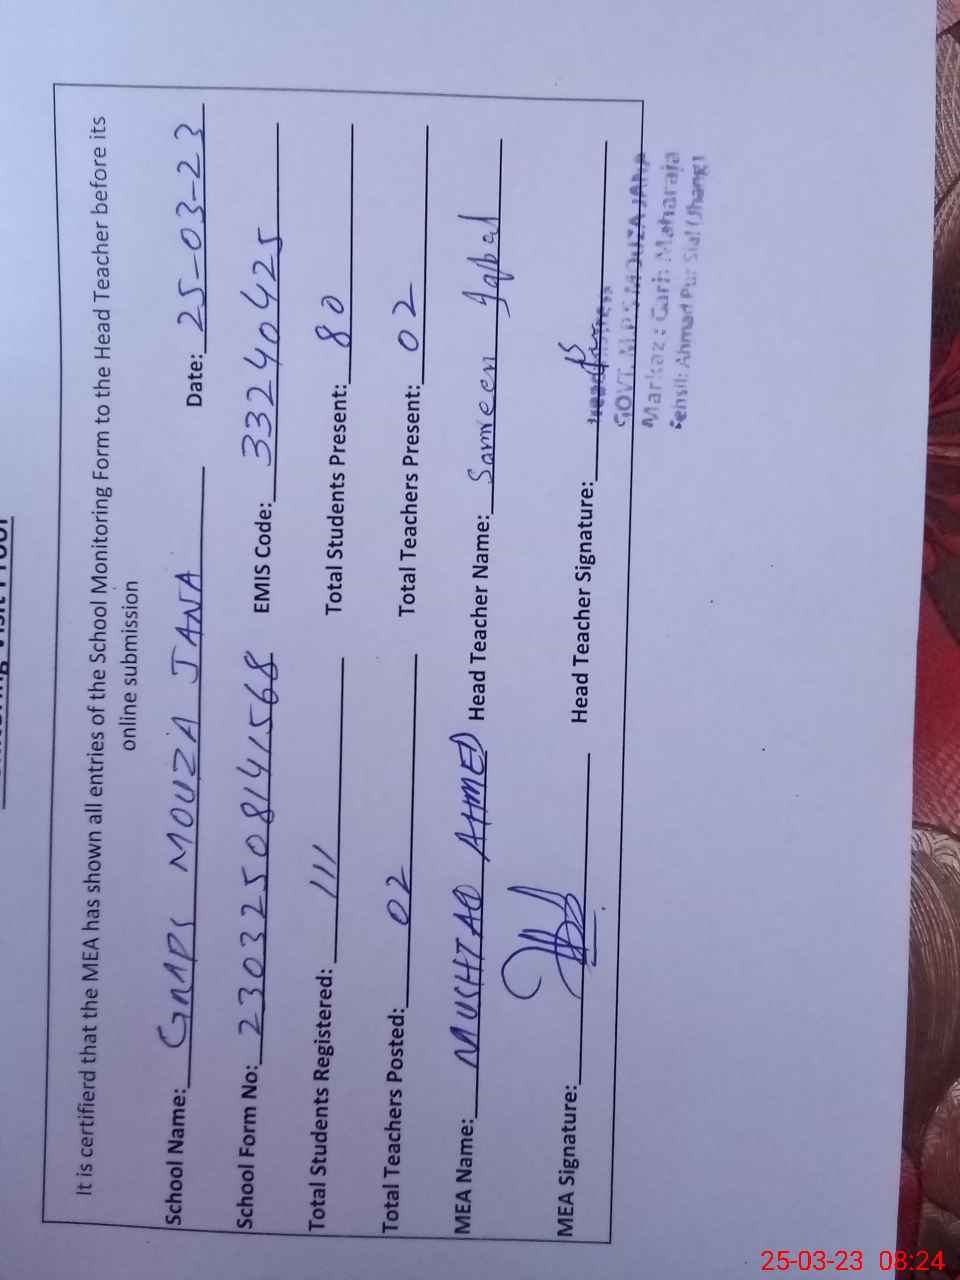 It is certifierd that the MEA has shown all entries of the School Monitoring Form to the Head Teacher before its
online submission
School Name: GMPS MOUZA JANA Date: 25-03-23
School Form No: 23032508141568 EMIS Code: 33240425
Total Students Registered: 111 Total Students Present: 80
Total Teachers Posted: 02 Total Teachers Present: 02
MEA Name: MUSHTAQ AHMED Head Teacher Name: Samreen Iqbal
MEA Signature: Head Teacher Signature:
GOVT. M.P.S MOUZA JANA
Markaz: Garh Maharaja
Tehsil: Ahmad Pur Sial (Jhang)
25-03-23 08:24